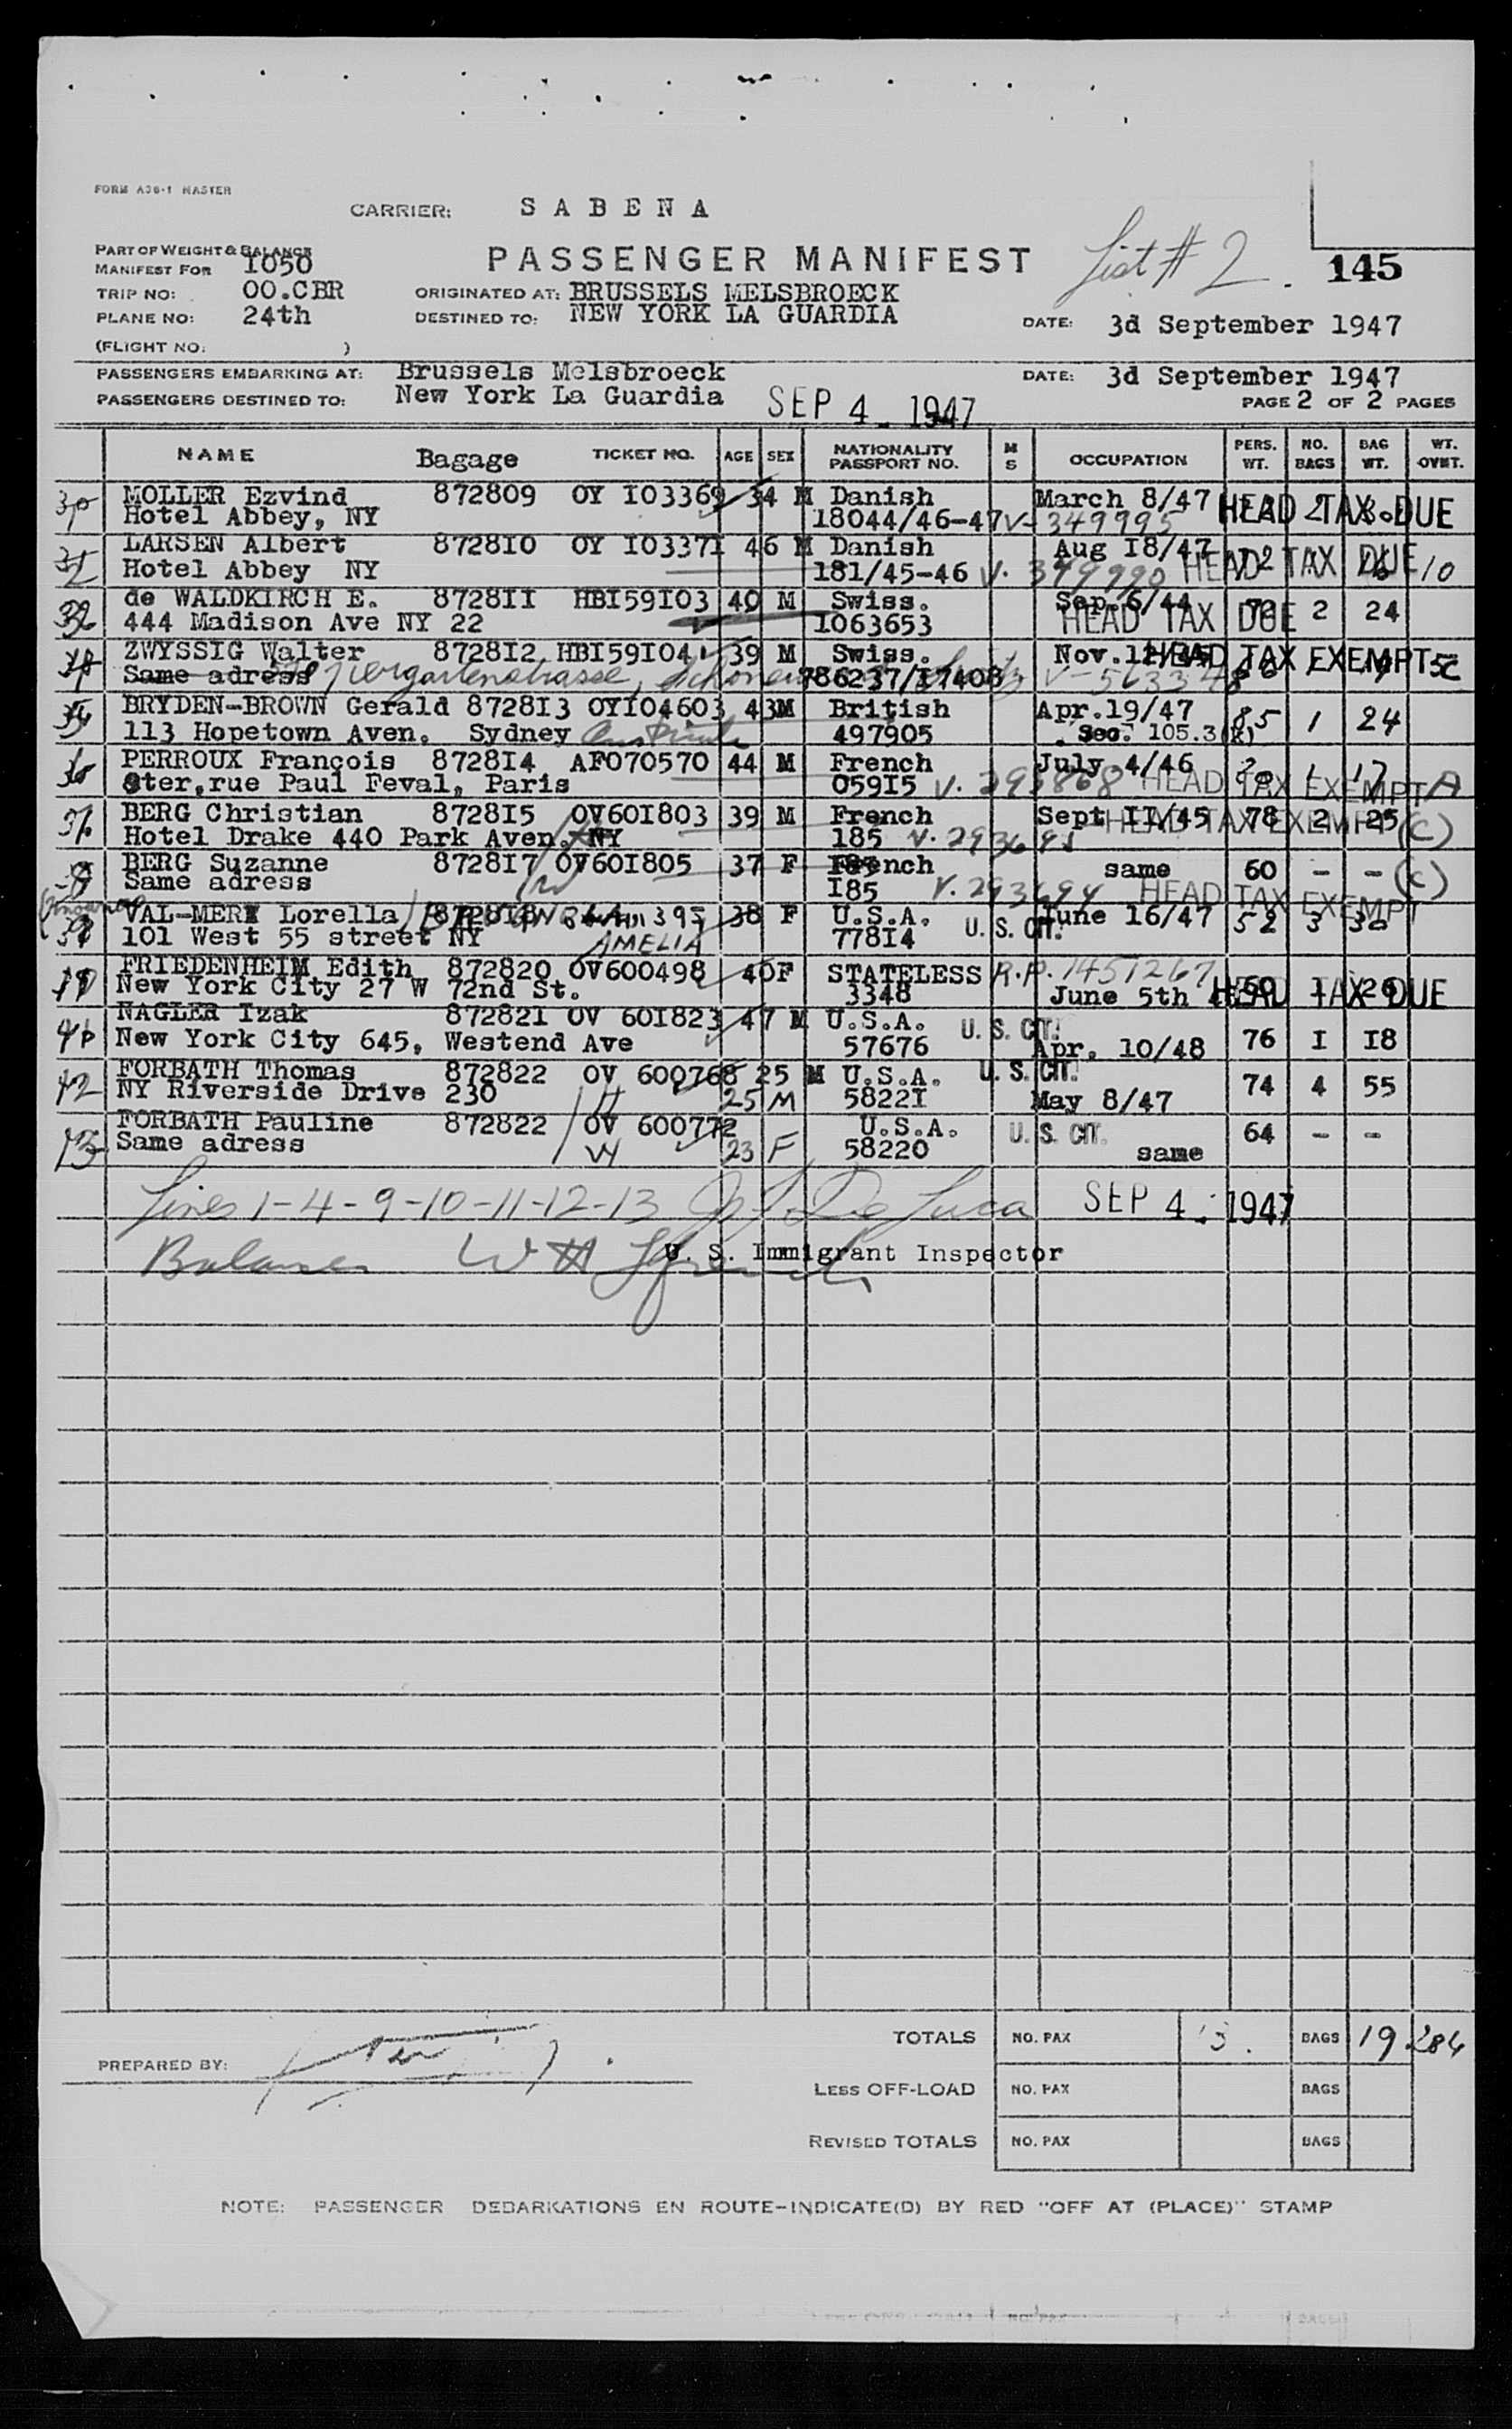 FORM A36-1 MASTER
CARRIER: S A B E N A
PART OF WEIGHT & BALANCE
MANIFEST FOR I050
PASSENGER MANIFEST
List # 2.
145
TRIP NO: OO.CBR
ORIGINATED AT: BRUSSELS MELSBROECK
PLANE NO: 24th
DESTINED TO: NEW YORK LA GUARDIA
DATE: 3d September 1947
(FLIGHT NO. )
PASSENGERS EMBARKING AT: Brussels Melsbroeck
DATE: 3d September 1947
PASSENGERS DESTINED TO: New York La Guardia
SEP 4 1947
PAGE 2 OF 2 PAGES
NAME Bagage TICKET NO. AGE SEX NATIONALITY PASSPORT NO. M S OCCUPATION PERS. WT. NO. BAGS BAG WT. WT. OVWT.
MOLLER Ezvind 872809 OY I03369 34 M Danish March 8/47 HEAD TAX DUE
Hotel Abbey, NY 18044/46-47 V-349995
LARSEN Albert 8728IO OY I0337I 46 M Danish Aug I8/47 HEAD TAX DUE 10
Hotel Abbey NY 181/45-46 V. 349990
32 de WALDKIRCH E. 8728II HBI59I03 40 M Swiss. Sep. 6/44 2 24
444 Madison Ave NY 22 I063653 HEAD TAX DUE
ZWYSSIG Walter 8728I2 HBI59I04 39 M Swiss. HEAD TAX EXEMPT
Same adress 786237/I7408
BRYDEN-BROWN Gerald 8728I3 OYI04603 43M British Apr.19/47 85 1 24
113 Hopetown Aven. Sydney 497905 Sec. 105.3
PERROUX François 8728I4 AF070570 44 M French July 4/46 1 17
ter,rue Paul Feval, Paris 059I5 V. 293868 HEAD TAX EXEMPT A
BERG Christian 8728I5 OV60I803 39 M French Sept II/45 78 2 25
Hotel Drake 440 Park Aven. NY 185 HEAD TAX EXEMPT (C)
BERG Suzanne 8728I7 OV60I805 37 F French same 60 - - (C)
Same adress I85 V. 293694 HEAD TAX EXEMPT
VAL-MERI Lorella 8728I8 395 38 F U.S.A. U. S. CIT. June 16/47 52 3 30
101 West 55 street NY AMELIA 778I4
FRIEDENHEIM Edith 872820 OV600498 40F STATELESS R.P. 1451267 60 I 26
New York City 27 W 72nd St. 3348 June 5th HEAD TAX DUE
NAGLER Izak 87282I OV 60I823 47 M U.S.A. U. S. CIT. 76 I I8
New York City 645, Westend Ave 57676 Apr. 10/48
42 FORBATH Thomas 872822 OV 600768 25 M U.S.A. U. S. CIT. 74 4 55
NY Riverside Drive 230 H 25 M 5822I May 8/47
FORBATH Pauline 872822 OV 600772 U.S.A. U. S. CIT. 64 - --
Same adress W 23 F 58220 same
Lines 1-4-9-10-11-12-13 De Luca SEP 4 1947
Balance U. S. Immigrant Inspector
TOTALS NO. PAX BAGS 19 284
PREPARED BY:
LESS OFF-LOAD NO. PAX BAGS
REVISED TOTALS NO. PAX BAGS
NOTE: PASSENGER DEBARKATIONS EN ROUTE-INDICATE(D) BY RED "OFF AT (PLACE)" STAMP